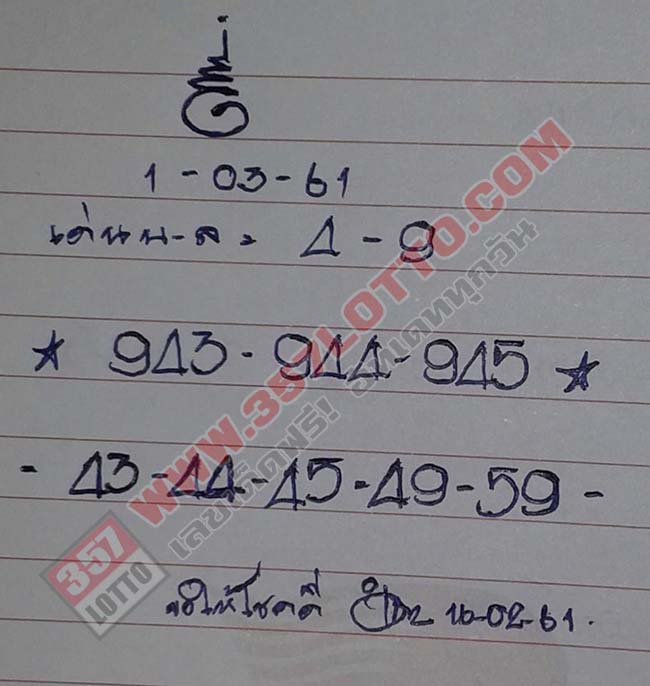 1-03-61
เด่นบ-ล = 4 - 9
943 - 944 - 945
- 43 - 44 - 45 - 49 - 59 -
ขอให้โชคดี 16-02-61.
WWW.357LOTTO.COM
เลขเด็ดฟรี! อัพเดททุกวัน
357
LOTTO